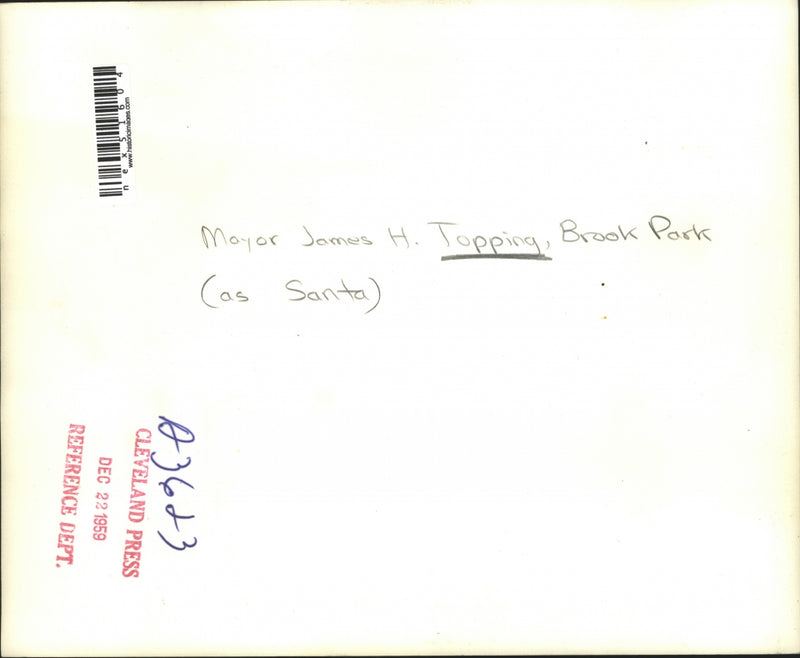 nex51604
www.historicimages.com
Mayor James H. Topping, Brook Park
(as Santa)
CLEVELAND PRESS
DEC 22 1959
REFERENCE DEPT.